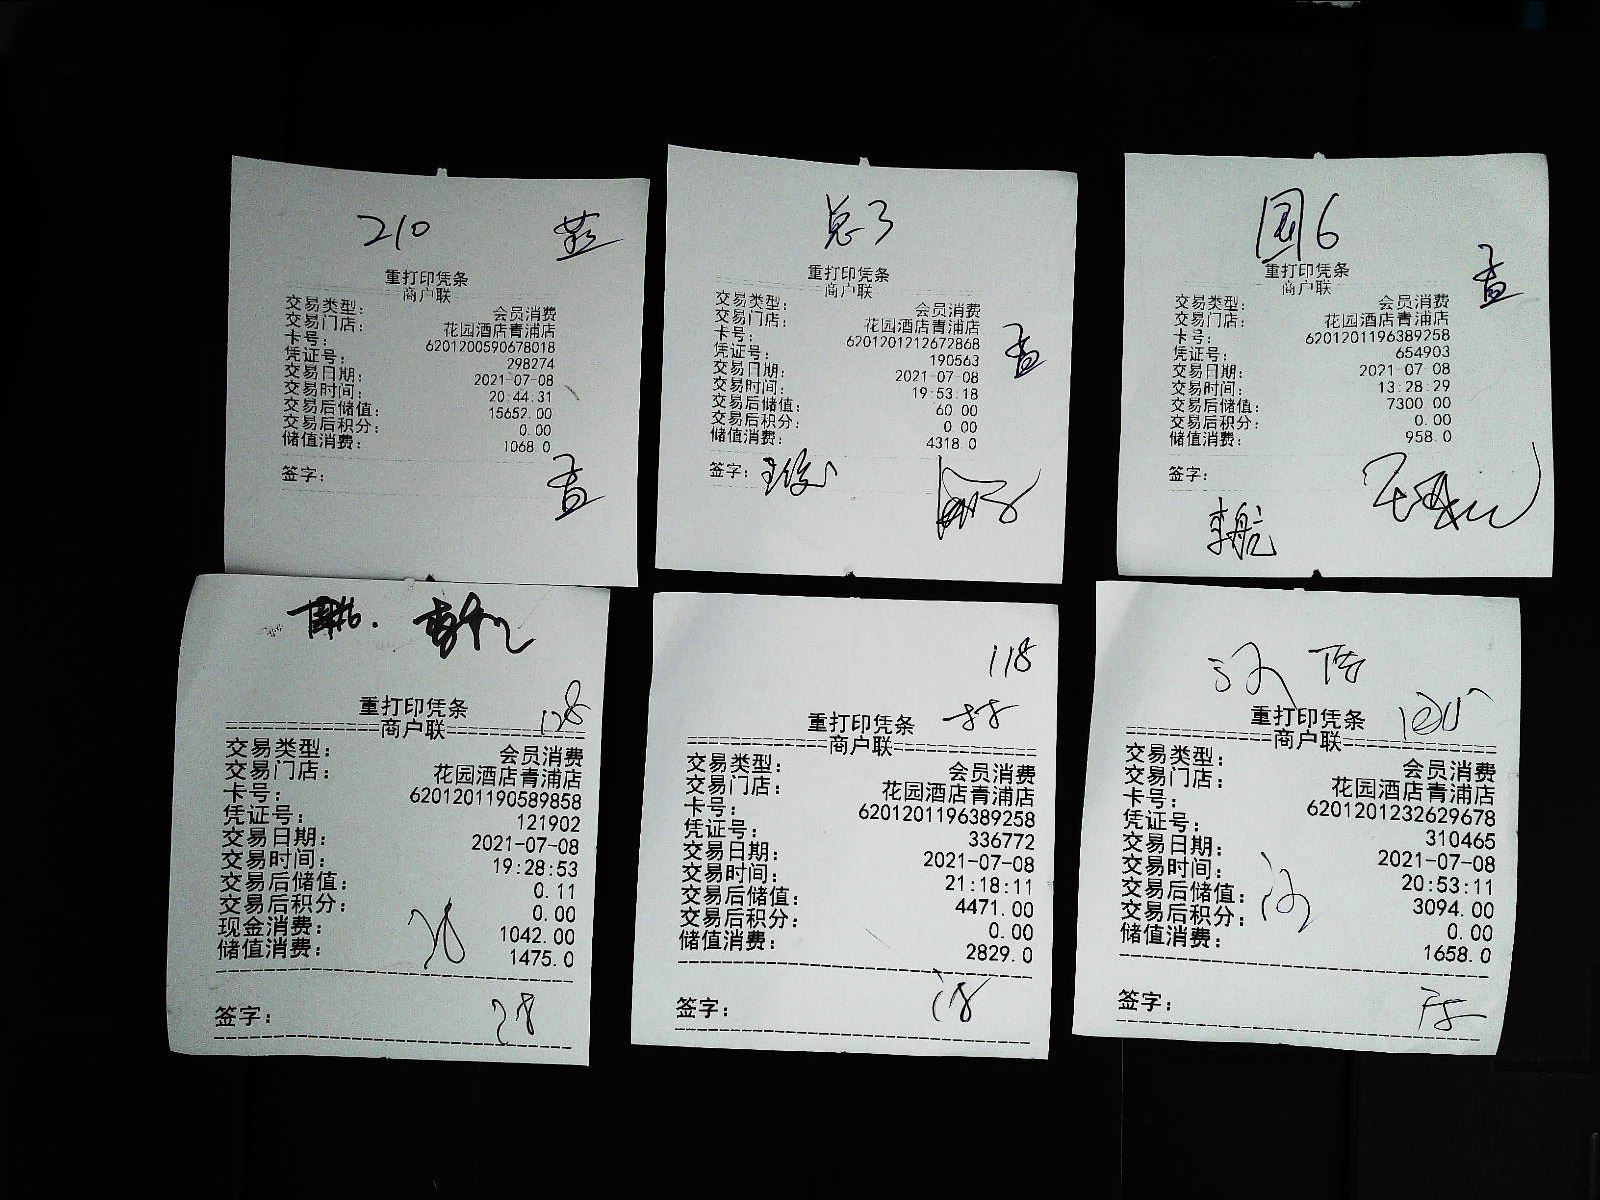 210
重打印凭条
商户联
交易类型: 会员消费
交易门店: 花园酒店青浦店
卡号: 6201200590678018
凭证号: 298274
交易日期: 2021-07-08
交易时间: 20:44:31
交易后储值: 15652.00
交易后积分: 0.00
储值消费: 1068.0
签字:
总3
重打印凭条
商户联
交易类型: 会员消费
交易门店: 花园酒店青浦店
卡号: 6201201212672868
凭证号: 190563
交易日期: 2021-07-08
交易时间: 19:53:18
交易后储值: 60.00
交易后积分: 0.00
储值消费: 4318.0
签字:
国6
重打印凭条
商户联
交易类型: 会员消费
交易门店: 花园酒店青浦店
卡号: 6201201196389258
凭证号: 654903
交易日期: 2021-07-08
交易时间: 13:28:29
交易后储值: 7300.00
交易后积分: 0.00
储值消费: 958.0
签字:
李航
128
重打印凭条
商户联
交易类型: 会员消费
交易门店: 花园酒店青浦店
卡号: 6201201190589858
凭证号: 121902
交易日期: 2021-07-08
交易时间: 19:28:53
交易后储值: 0.11
交易后积分: 0.00
现金消费: 1042.00
储值消费: 1475.0
签字:
118
重打印凭条
商户联
交易类型: 会员消费
交易门店: 花园酒店青浦店
卡号: 6201201196389258
凭证号: 336772
交易日期: 2021-07-08
交易时间: 21:18:11
交易后储值: 4471.00
交易后积分: 0.00
储值消费: 2829.0
签字:
重打印凭条
商户联
交易类型: 会员消费
交易门店: 花园酒店青浦店
卡号: 6201201232629678
凭证号: 310465
交易日期: 2021-07-08
交易时间: 20:53:11
交易后储值: 3094.00
交易后积分: 0.00
储值消费: 1658.0
签字: